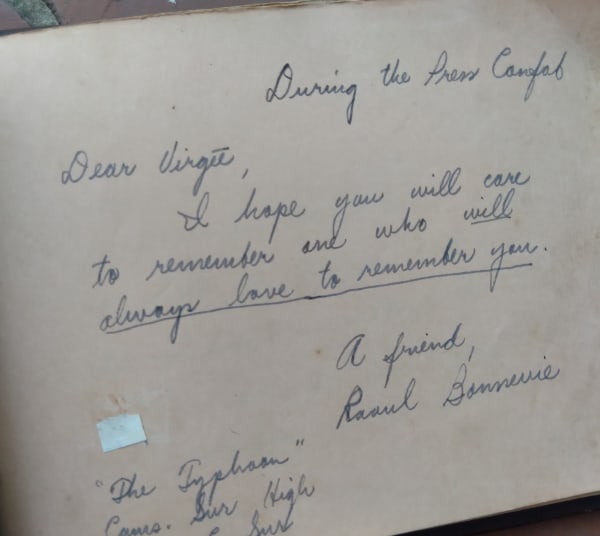 During the Press Confab
Dear Virgie,
I hope you will care
to remember one who will
always love to remember you.
A friend,
Raoul Bonnevie
"The Typhoon"
Cams. Sur High
Sur